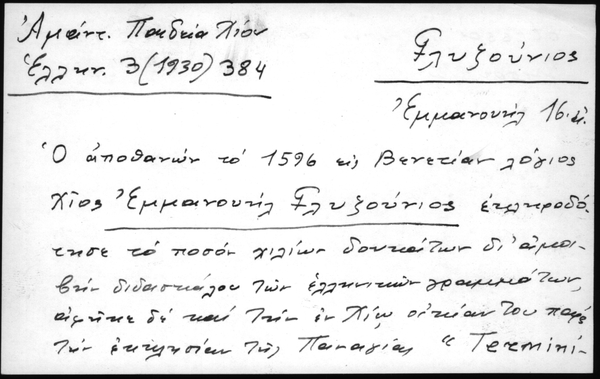 Ἀμάντ. Παιδεία Χίου
Ἑλλην. 3 (1930) 384
Γλυζούνιος
Ἐμμανουήλ 16. αἰ.
Ὁ ἀποθανών τό 1596 εἰς Βενετίαν λόγιος
Χῖος Ἐμμανουήλ Γλυζούνιος ἐκληροδό-
τησε τό ποσόν χιλίων δουκάτων δι' ἀμοι-
βήν διδασκάλου τῶν ἑλληνικῶν γραμμάτων,
ἀφῆκε δέ καί τήν ἐν Χίῳ οἰκίαν του παρά
τήν ἐκκλησίαν τῆς Παναγίας "Termini-